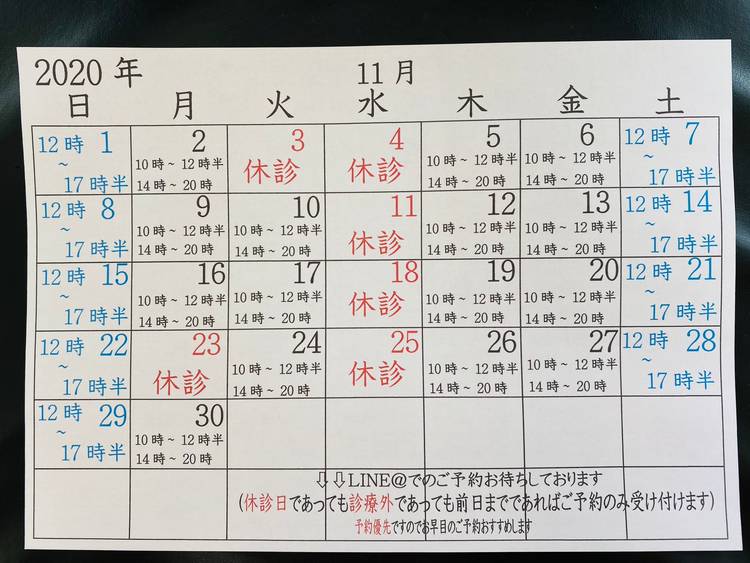 2020 年 11 月
日 月 火 水 木 金 土
12 時 1 2 3 4 5 6 12 時 7
~ 10 時~ 12 時半 休診 休診 10 時~ 12 時半 10 時~ 12 時半 ~
17 時半 14 時~ 20 時 14 時~ 20 時 14 時~ 20 時 17 時半
12 時 8 9 10 11 12 13 12 時 14
~ 10 時~ 12 時半 10 時~ 12 時半 休診 10 時~ 12 時半 10 時~ 12 時半 ~
17 時半 14 時~ 20 時 14 時~ 20 時 14 時~ 20 時 14 時~ 20 時 17 時半
12 時 15 16 17 18 19 20 12 時 21
~ 10 時~ 12 時半 10 時~ 12 時半 休診 10 時~ 12 時半 10 時~ 12 時半 ~
17 時半 14 時~ 20 時 14 時~ 20 時 14 時~ 20 時 14 時~ 20 時 17 時半
12 時 22 23 24 25 26 27 12 時 28
~ 休診 10 時~ 12 時半 休診 10 時~ 12 時半 10 時~ 12 時半 ~
17 時半 14 時~ 20 時 14 時~ 20 時 14 時~ 20 時 17 時半
12 時 29 30
~ 10 時~ 12 時半
17 時半 14 時~ 20 時
⇩⇩LINE@でのご予約お待ちしております
(休診日であっても診療外であっても前日までであればご予約のみ受け付けます)
予約優先ですのでお早目のご予約おすすめします